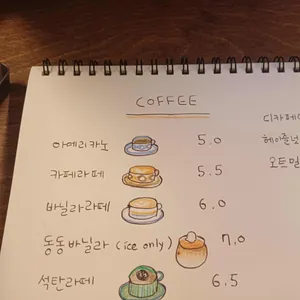 COFFEE
아메리카노 5.0
카페라떼 5.5
바닐라라떼 6.0
동동바닐라 (ice only) 7.0
석탄라떼 6.5
디카페
헤이즐넛
오트밀